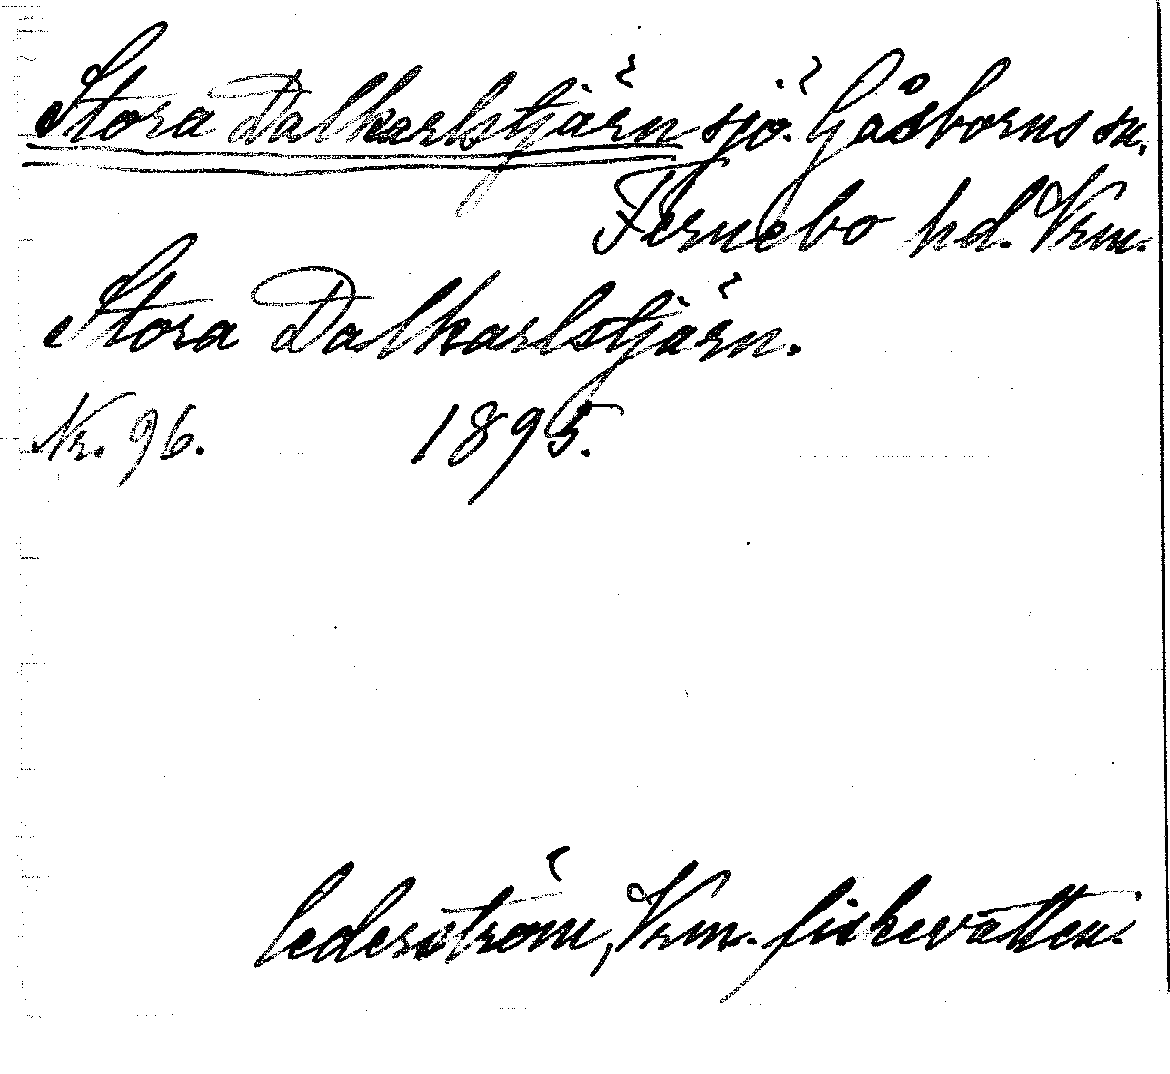 Stora Dalkarlstjärn sjö. Gåsborns sn.
Fernebo hd. Vrm.
Stora Dalkarlstjärn.
Nr. 96. 1895.
Cederström, Vrm. fiskevatten.